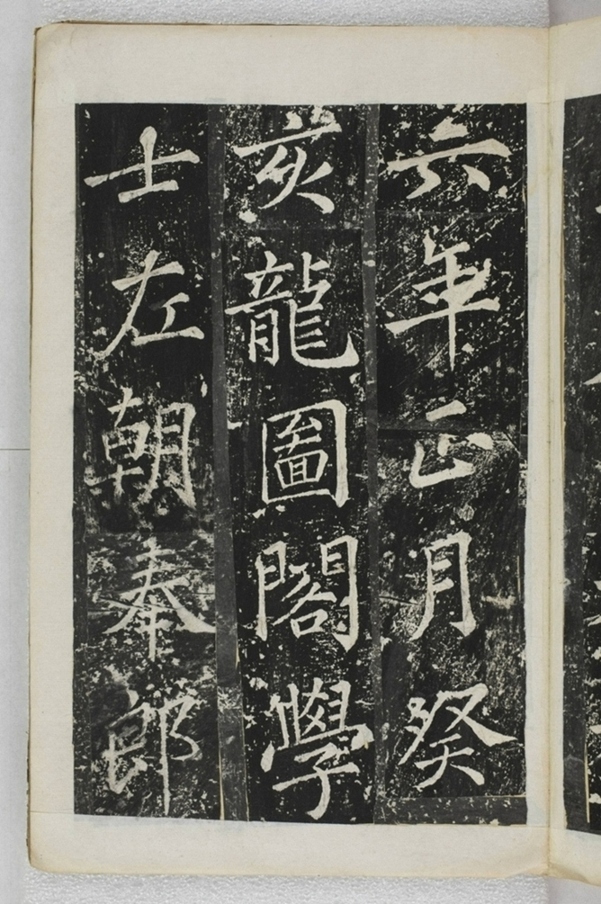 六年正月癸
亥龍圖閣學
士左朝奉郎